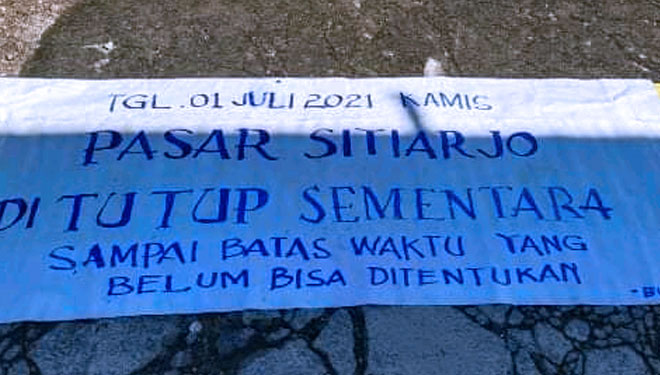 TGL. 01 JULI 2021 KAMIS
PASAR SITIARJO
DI TUTUP SEMENTARA
SAMPAI BATAS WAKTU YANG
BELUM BISA DITENTUKAN